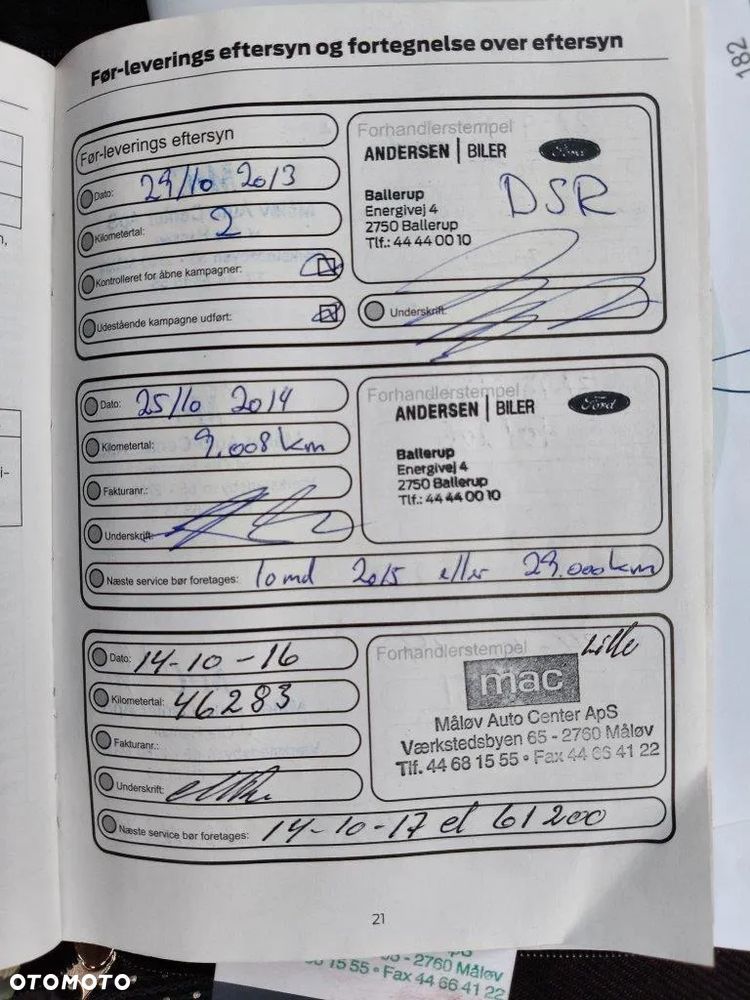 182
Før-leverings eftersyn og fortegnelse over eftersyn
Før-leverings eftersyn
Dato: 29/10 2013
Kilometertal: 2
Kontrolleret for åbne kampagner:
Udestående kampagne udført:
Forhandlerstempel
ANDERSEN | BILER
Ford
DSR
Ballerup
Energivej 4
2750 Ballerup
Tlf.: 44 44 00 10
Underskrift:
Dato: 25/10 2014
Kilometertal: 9.008 km
Fakturanr.:
Underskrift:
Forhandlerstempel
ANDERSEN | BILER
Ford
Ballerup
Energivej 4
2750 Ballerup
Tlf.: 44 44 00 10
Næste service bør foretages: 10 md 2015 eller 29.000 km
Dato: 14-10-16
Kilometertal: 46283
Fakturanr.:
Underskrift:
Forhandlerstempel Lille
mac
Måløv Auto Center ApS
Værkstedsbyen 65 - 2760 Måløv
Tlf. 44 68 15 55 • Fax 44 66 41 22
Næste service bør foretages: 14-10-17 el 61200
21
- 2760 Måløv
15 55 • Fax 44 66 41 22
OTOMOTO